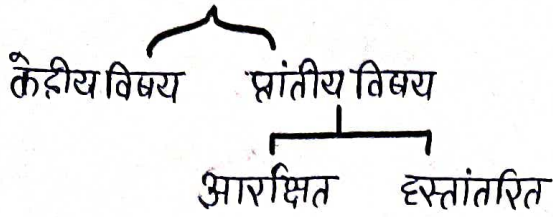 केद्रीय विषय प्रांतीय विषय
आरक्षित हस्तांतरित